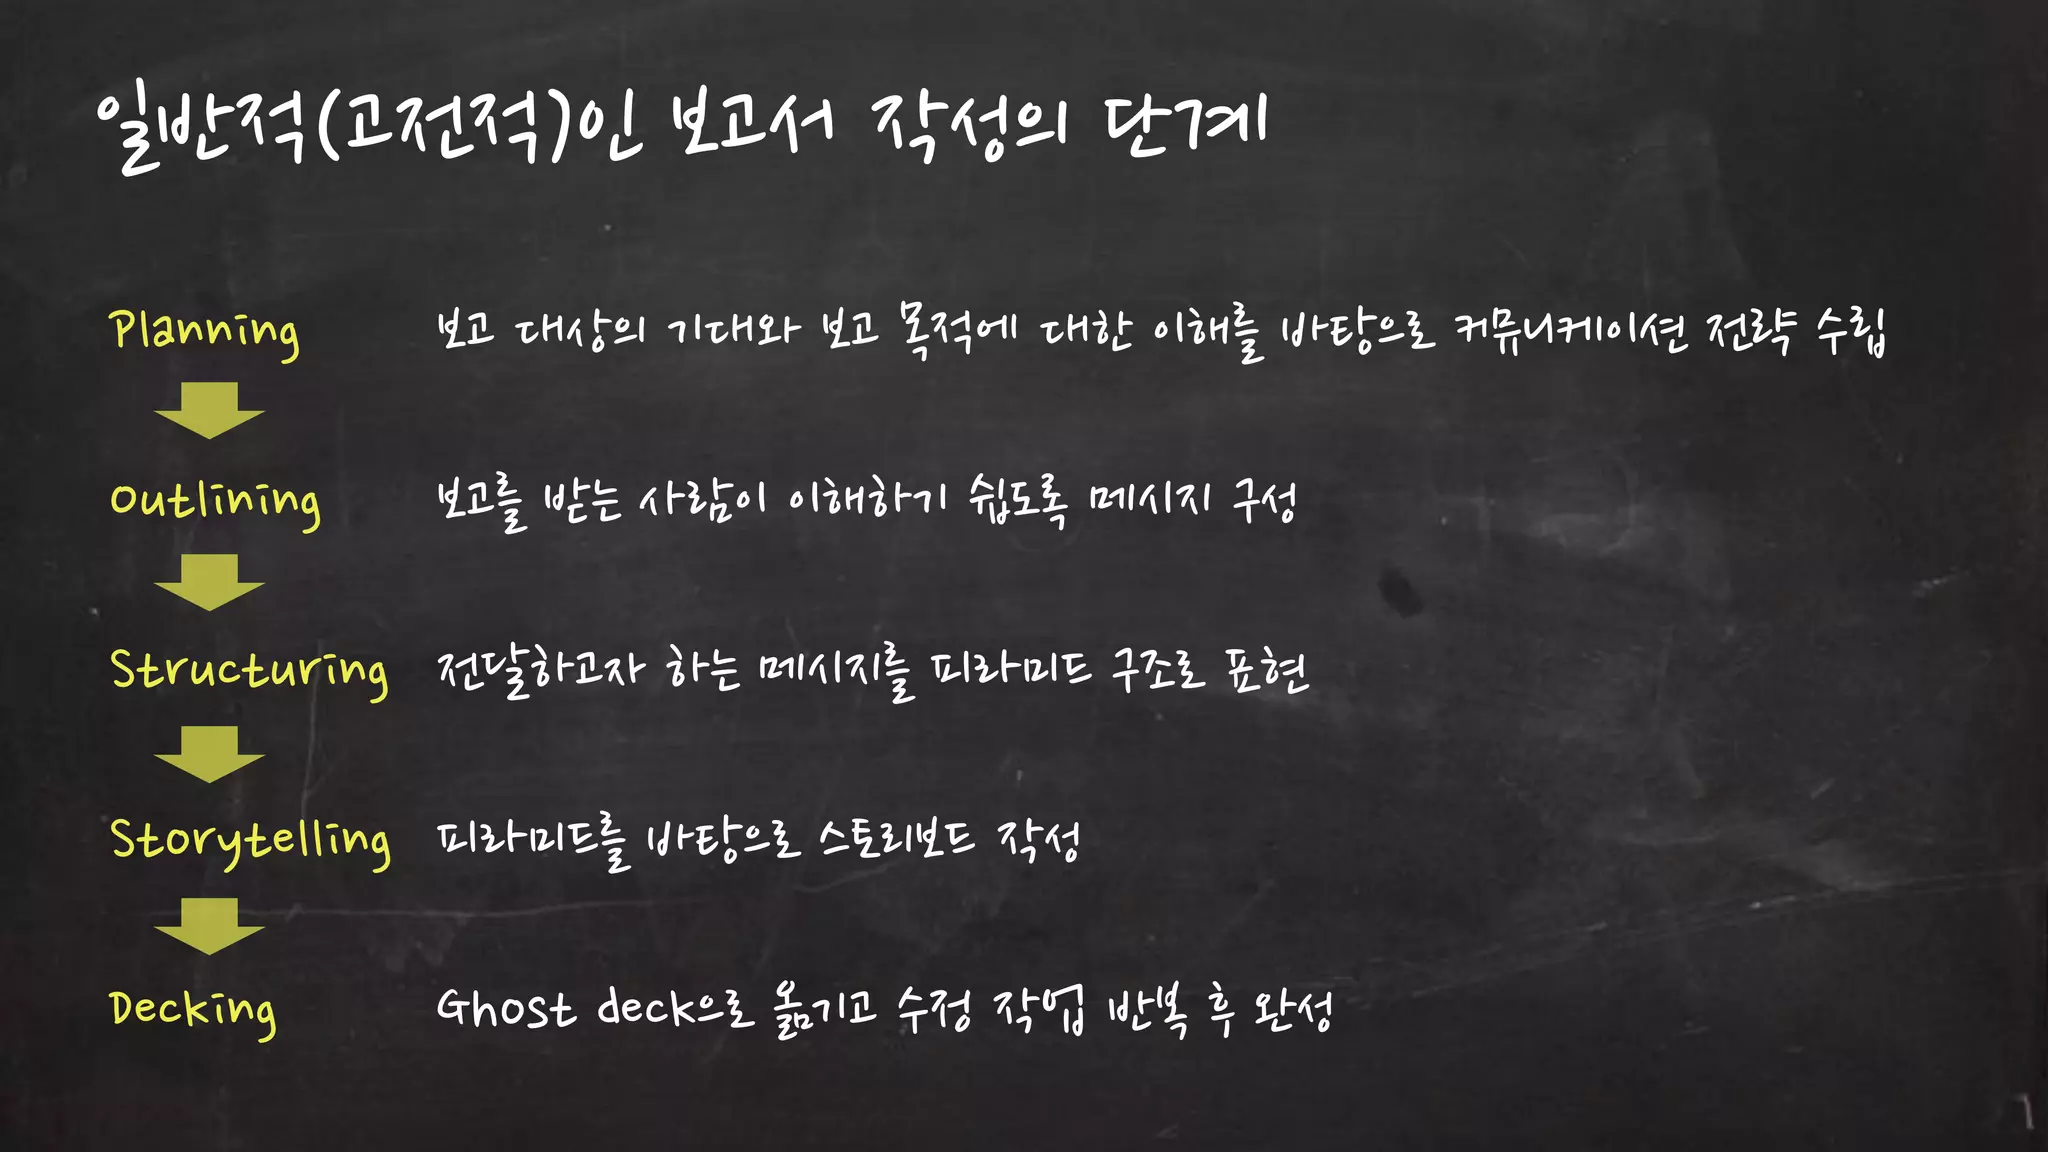 일반적(고전적)인 보고서 작성의 단계
Planning 보고 대상의 기대와 보고 목적에 대한 이해를 바탕으로 커뮤니케이션 전략 수립
Outlining 보고를 받는 사람이 이해하기 쉽도록 메시지 구성
Structuring 전달하고자 하는 메시지를 피라미드 구조로 표현
Storytelling 피라미드를 바탕으로 스토리보드 작성
Decking Ghost deck으로 옮기고 수정 작업 반복 후 완성
7